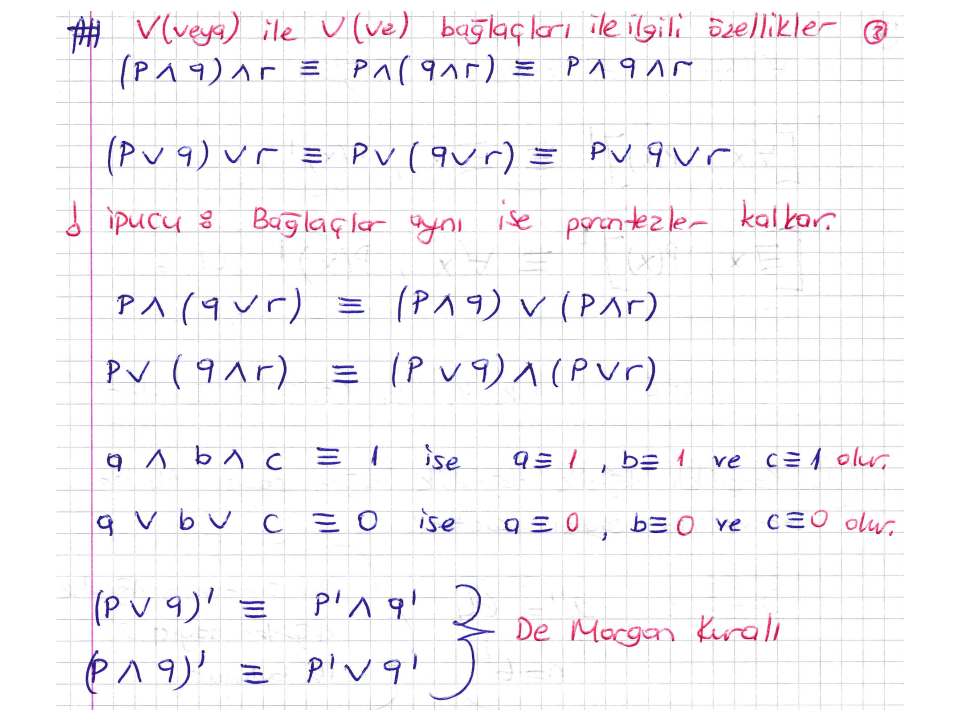 ## V(veya) ile V(ve) bağlaçları ile ilgili özellikler ③
(P∧q)∧r ≡ P∧(q∧r) ≡ P∧q∧r
(P∨q)∨r ≡ P∨(q∨r) ≡ P∨q∨r
ipucu : Bağlaçlar aynı ise parantezler kalkar.
P∧(q∨r) ≡ (P∧q)∨(P∧r)
P∨(q∧r) ≡ (P∨q)∧(P∨r)
a ∧ b ∧ c ≡ 1 ise a≡1, b≡1 ve c≡1 olur.
a ∨ b ∨ c ≡ 0 ise a≡0, b≡0 ve c≡0 olur.
(P∨q)' ≡ P'∧q'
De Morgan Kuralı
(P∧q)' ≡ P'∨q'